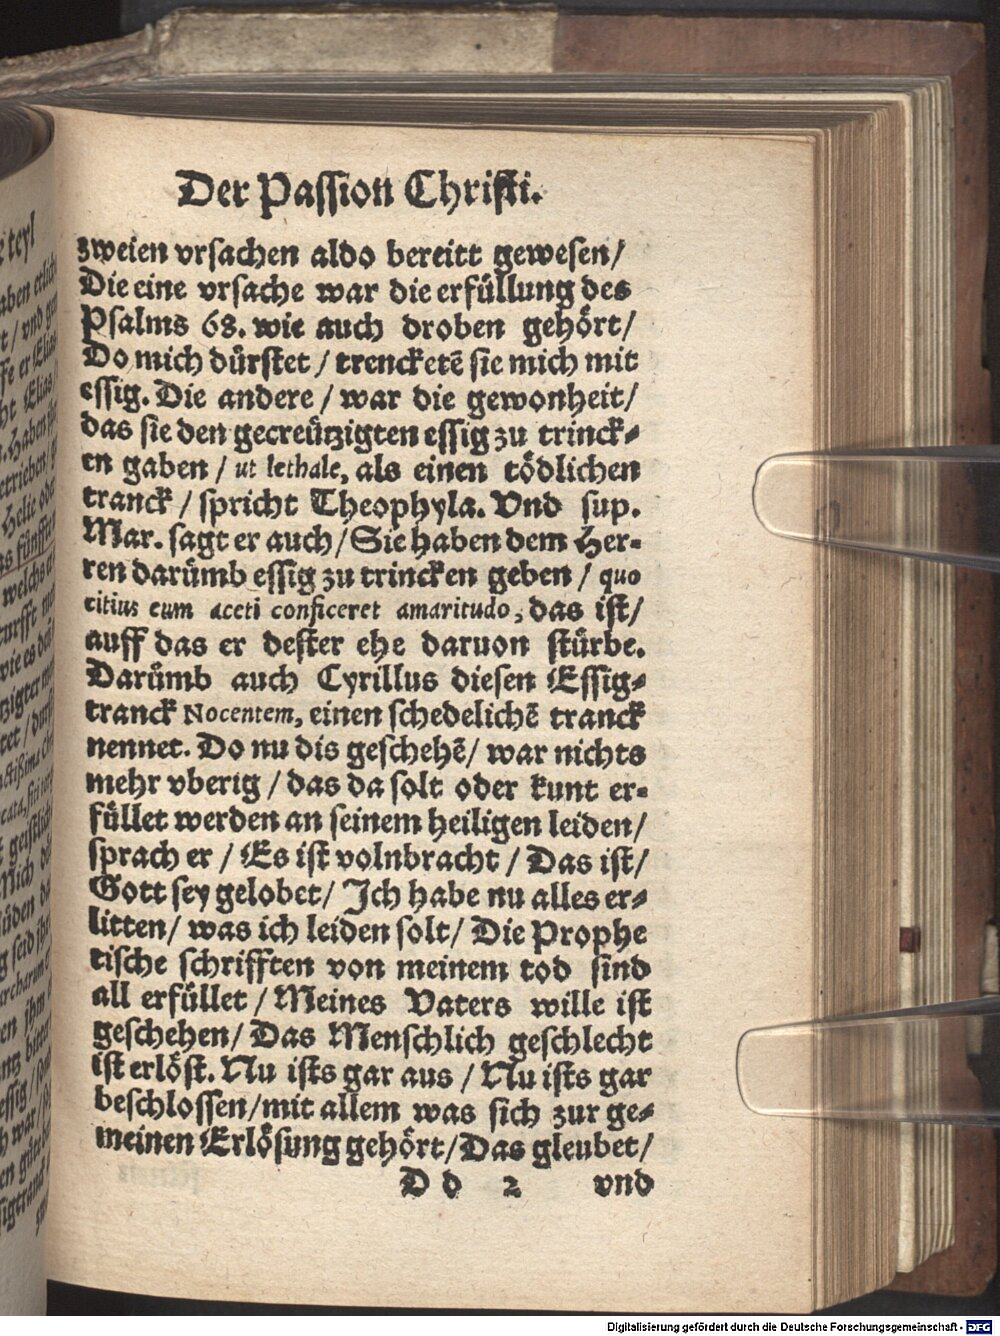 Der Passion Christi.
zweien vrsachen aldo bereitt gewesen/
Die eine vrsache war die erfüllung des
Psalms 68. wie auch droben gehört/
Do mich dürstet / trencketē sie mich mit
essig. Die andere / war die gewonheit/
das sie den gecreützigten essig zu trinck⸗
en gaben / ut lethale, als einen tödlichen
tranck / spricht Theophyla. Vnd sup.
Mar. sagt er auch / Sie haben dem Her⸗
ren darümb essig zu trincken geben / quo
citius eum aceti conficeret amaritudo, das ist/
auff das er dester ehe daruon stürbe.
Darümb auch Cyrillus diesen Essig⸗
tranck Nocentem, einen schedelichē tranck
nennet. Do nu dis geschehē/ war nichts
mehr vberig / das da solt oder kunt er⸗
füllet werden an seinem heiligen leiden/
sprach er / Es ist volnbracht / Das ist/
Gott sey gelobet/ Ich habe nu alles er⸗
litten/ was ich leiden solt/ Die Prophe
tische schrifften von meinem tod sind
all erfüllet / Meines Vaters wille ist
geschehen/ Das Menschlich geschlecht
ist erlöst. Nu ists gar aus / Nu ists gar
beschlossen/mit allem was sich zur ge⸗
meinen Erlösung gehört/Das gleubet/
D d 2 vnd
Digitalisierung gefördert durch die Deutsche Forschungsgemeinschaft - DFG